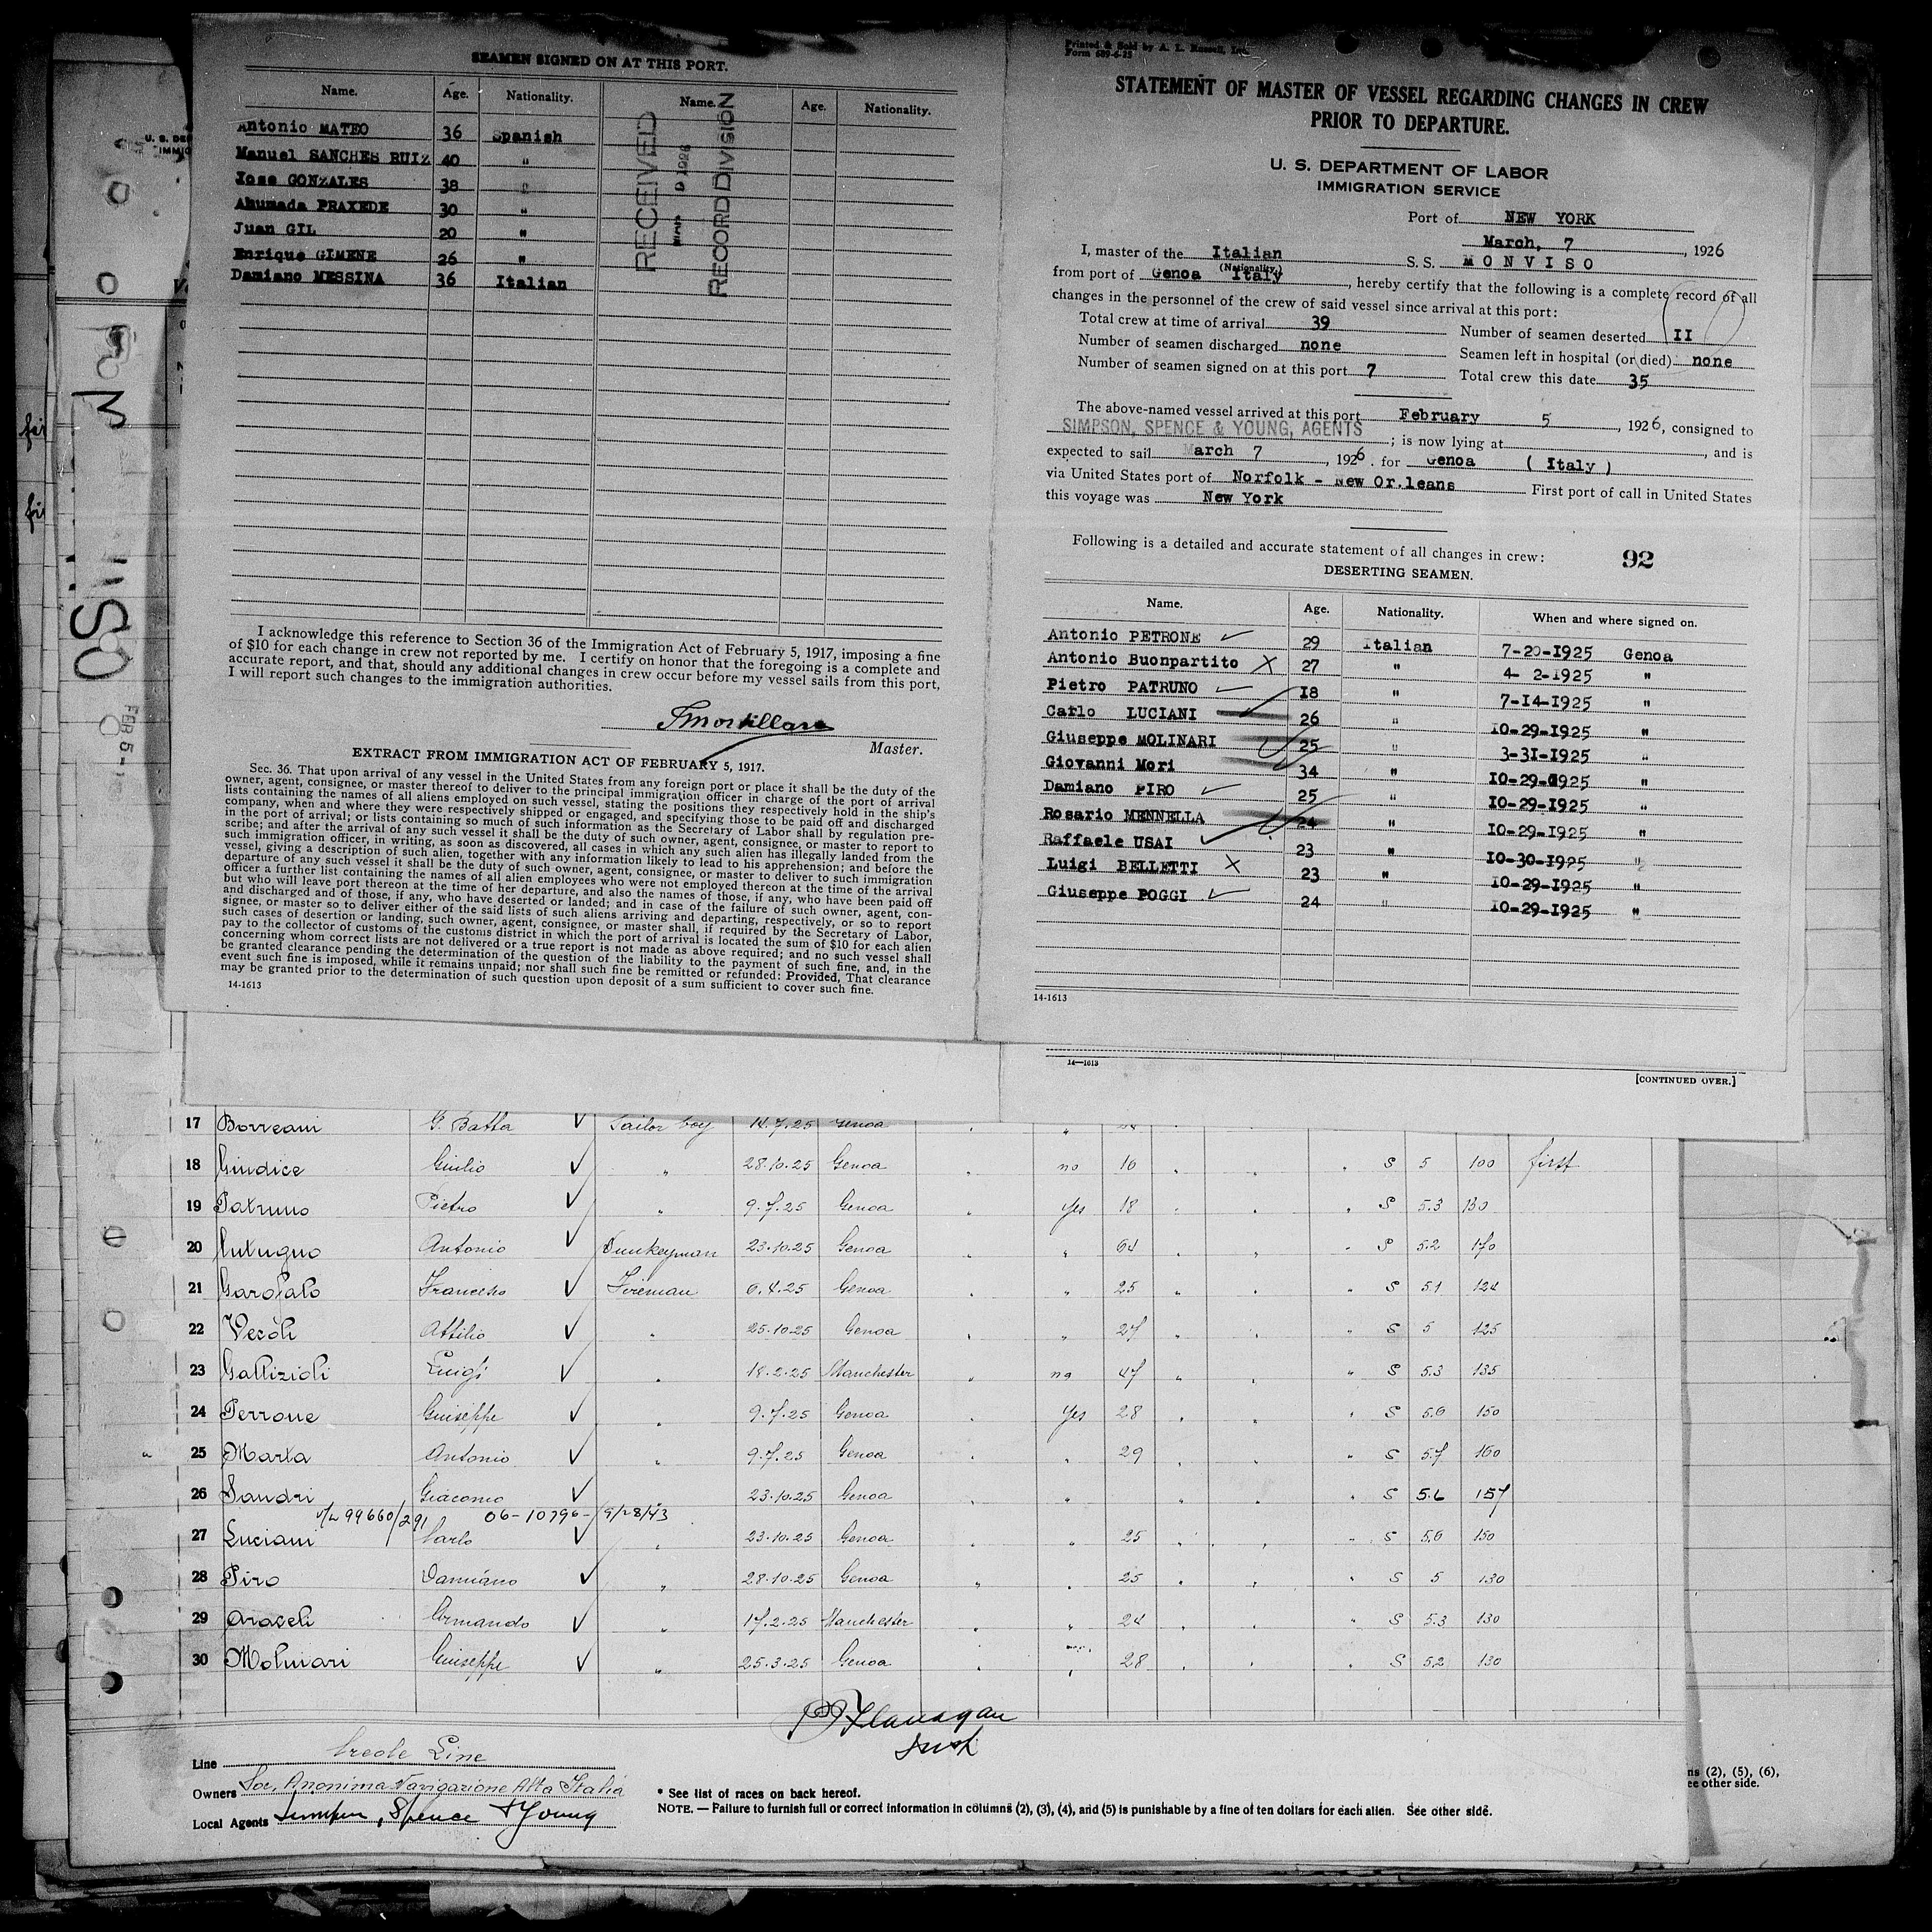 SEAMEN SIGNED ON AT THIS PORT.
Name. Age. Nationality. Name. Age. Nationality.
Antonio MATEO 36 Spanish
Manuel SANCHES RUIZ 40 "
Iose GONZALES 38 "
Ahumada PRAXEDE 30 "
Juan GIL 20 "
Enrique GIMENE 26 "
Damiano MESSINA 36 Italian
RECEIVED
RECORD DIVISION
I acknowledge this reference to Section 36 of the Immigration Act of February 5, 1917, imposing a fine
of $10 for each change in crew not reported by me. I certify on honor that the foregoing is a complete and
accurate report, and that, should any additional changes in crew occur before my vessel sails from this port,
I will report such changes to the immigration authorities.
Master.
EXTRACT FROM IMMIGRATION ACT OF FEBRUARY 5, 1917.
Sec. 36. That upon arrival of any vessel in the United States from any foreign port or place it shall be the duty of the
owner, agent, consignee, or master thereof to deliver to the principal immigration officer in charge of the port of arrival
lists containing the names of all aliens employed on such vessel, stating the positions they respectively hold in the ship's
company, when and where they were respectively shipped or engaged, and specifying those to be paid off and discharged
in the port of arrival; or lists containing so much of such information as the Secretary of Labor shall by regulation pre-
scribe; and after the arrival of any such vessel it shall be the duty of such owner, agent, consignee, or master to report to
such immigration officer, in writing, as soon as discovered, all cases in which any such alien has illegally landed from the
vessel, giving a description of such alien, together with any information likely to lead to his apprehension; and before the
departure of any such vessel it shall be the duty of such owner, agent, consignee, or master to deliver to such immigration
officer a further list containing the names of all alien employees who were not employed thereon at the time of the arrival
but who will leave port thereon at the time of her departure, and also the names of those, if any, who have been paid off
and discharged and of those, if any, who have deserted or landed; and in case of the failure of such owner, agent, con-
signee, or master so to deliver either of the said lists of such aliens arriving and departing, respectively, or so to report
such cases of desertion or landing, such owner, agent, consignee, or master shall, if required by the Secretary of Labor,
pay to the collector of customs of the customs district in which the port of arrival is located the sum of $10 for each alien
concerning whom correct lists are not delivered or a true report is not made as above required; and no such vessel shall
be granted clearance pending the determination of the question of the liability to the payment of such fine, and, in the
event such fine is imposed, while it remains unpaid; nor shall such fine be remitted or refunded: Provided, That clearance
may be granted prior to the determination of such question upon deposit of a sum sufficient to cover such fine.
14-1613
Printed & Sold by A. L. Russell, Inc.
Form 689-6-25
STATEMENT OF MASTER OF VESSEL REGARDING CHANGES IN CREW
PRIOR TO DEPARTURE.
U. S. DEPARTMENT OF LABOR
IMMIGRATION SERVICE
Port of NEW YORK
March, 7, 1926
I, master of the Italian S. S. MONVISO
(Nationality.)
from port of Genoa Italy, hereby certify that the following is a complete record of all
changes in the personnel of the crew of said vessel since arrival at this port:
Total crew at time of arrival 39 Number of seamen deserted II
Number of seamen discharged none Seamen left in hospital (or died) none
Number of seamen signed on at this port 7 Total crew this date 35
The above-named vessel arrived at this port February 5, 1926, consigned to
SIMPSON, SPENCE & YOUNG, AGENTS; is now lying at, and is
expected to sail March 7, 1926. for Genoa ( Italy )
via United States port of Norfolk - New Or.leans First port of call in United States
this voyage was New York
Following is a detailed and accurate statement of all changes in crew: 92
DESERTING SEAMEN.
Name. Age. Nationality. When and where signed on.
Antonio PETRONE 29 Italian 7-20-I925 Genoa
Antonio Buonpartito X 27 " 4- 2-1925 "
Pietro PATRUNO I8 " 7-I4-I925 "
Carlo LUCIANI 26 " I0-29-I925 "
Giuseppe MOLINARI 25 " 3-3I-I925 "
Giovanni Mori 34 " I0-29-I925 "
Damiano PIRO 25 " I0-29-I925 "
Rosario MENNELLA 24 " I0-29-I925 "
Raffaele USAI 23 " I0-30-I925 "
Luigi BELLETTI X 23 " I0-29-I925 "
Giuseppe POGGI 24 " I0-29-I925 "
14-1613
14—1613
[CONTINUED OVER.]
17 Borreani G. Batta ✓ Sailor boy 14.7.25 Genoa
18 Giudice Giulio ✓ " 28.10.25 Genoa " no 16 " " " S 5 100 first
19 Patruno Pietro ✓ " 9.7.25 Genoa " yes 18 " " " S 5.3 130
20 Cutugno Antonio ✓ Dunkeyman 23.10.25 Genoa " " 64 " " " S 5.2 170
21 Garofalo Francesko ✓ Fireman 6.4.25 Genoa " " 25 " " " S 5.1 124
22 Vecoli Attilio ✓ " 25.10.25 Genoa " " 27 " " " S 5 125
23 Gallizioli Luigi ✓ " 18.2.25 Manchester " no 47 " " " S 5.3 135
24 Perrone Guiseppe ✓ " 9.7.25 Genoa " Yes 28 " " " S 5.6 150
25 Marta Antonio ✓ " 9.7.25 Genoa " " 29 " " " S 5.7 160
26 Sandri Giacomo ✓ " 23.10.25 Genoa " " " " " S 5.6 157
V/L 99660/291 06-10796- 9/28/43
27 Luciani Carlo ✓ " 23.10.25 Genoa " " 25 " " " S 5.6 150
28 Piro Damiano ✓ " 28.10.25 Genoa " " 25 " " " S 5 130
29 Araceli Armando ✓ " 17.2.25 Manchester " " 24 " " " S 5.3 130
30 Molinari Guiseppe ✓ " 25.3.25 Genoa " " 28 " " " S 5.2 130
Flanagan
Line Creole Line
Owners Soc. Anonima Navigazione Alta Italia
Local Agents Simpson, Spence & Young
* See list of races on back hereof.
NOTE. — Failure to furnish full or correct information in columns (2), (3), (4), and (5) is punishable by a fine of ten dollars for each alien. See other side.
ns (2), (5), (6),
ee other side.
FEB 5-